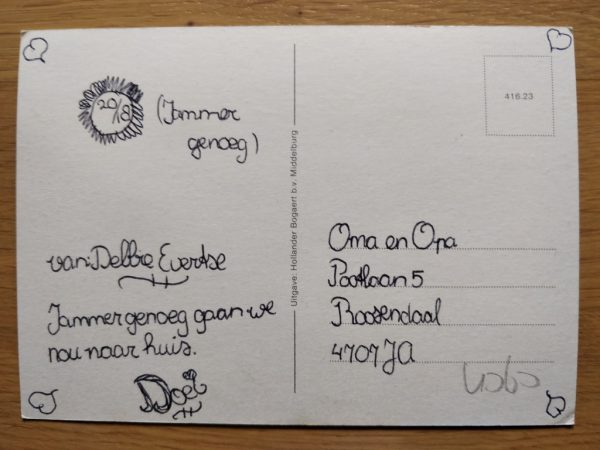 20/8
(Jammer
genoeg)
van: Debbie Evertse
Jammergenoeg gaan we
nou naar huis.
Doei
Uitgave: Hollander Bogaert b.v. Middelburg
416.23
Oma en Opa
Postlaan 5
Roosendaal
4707 JA